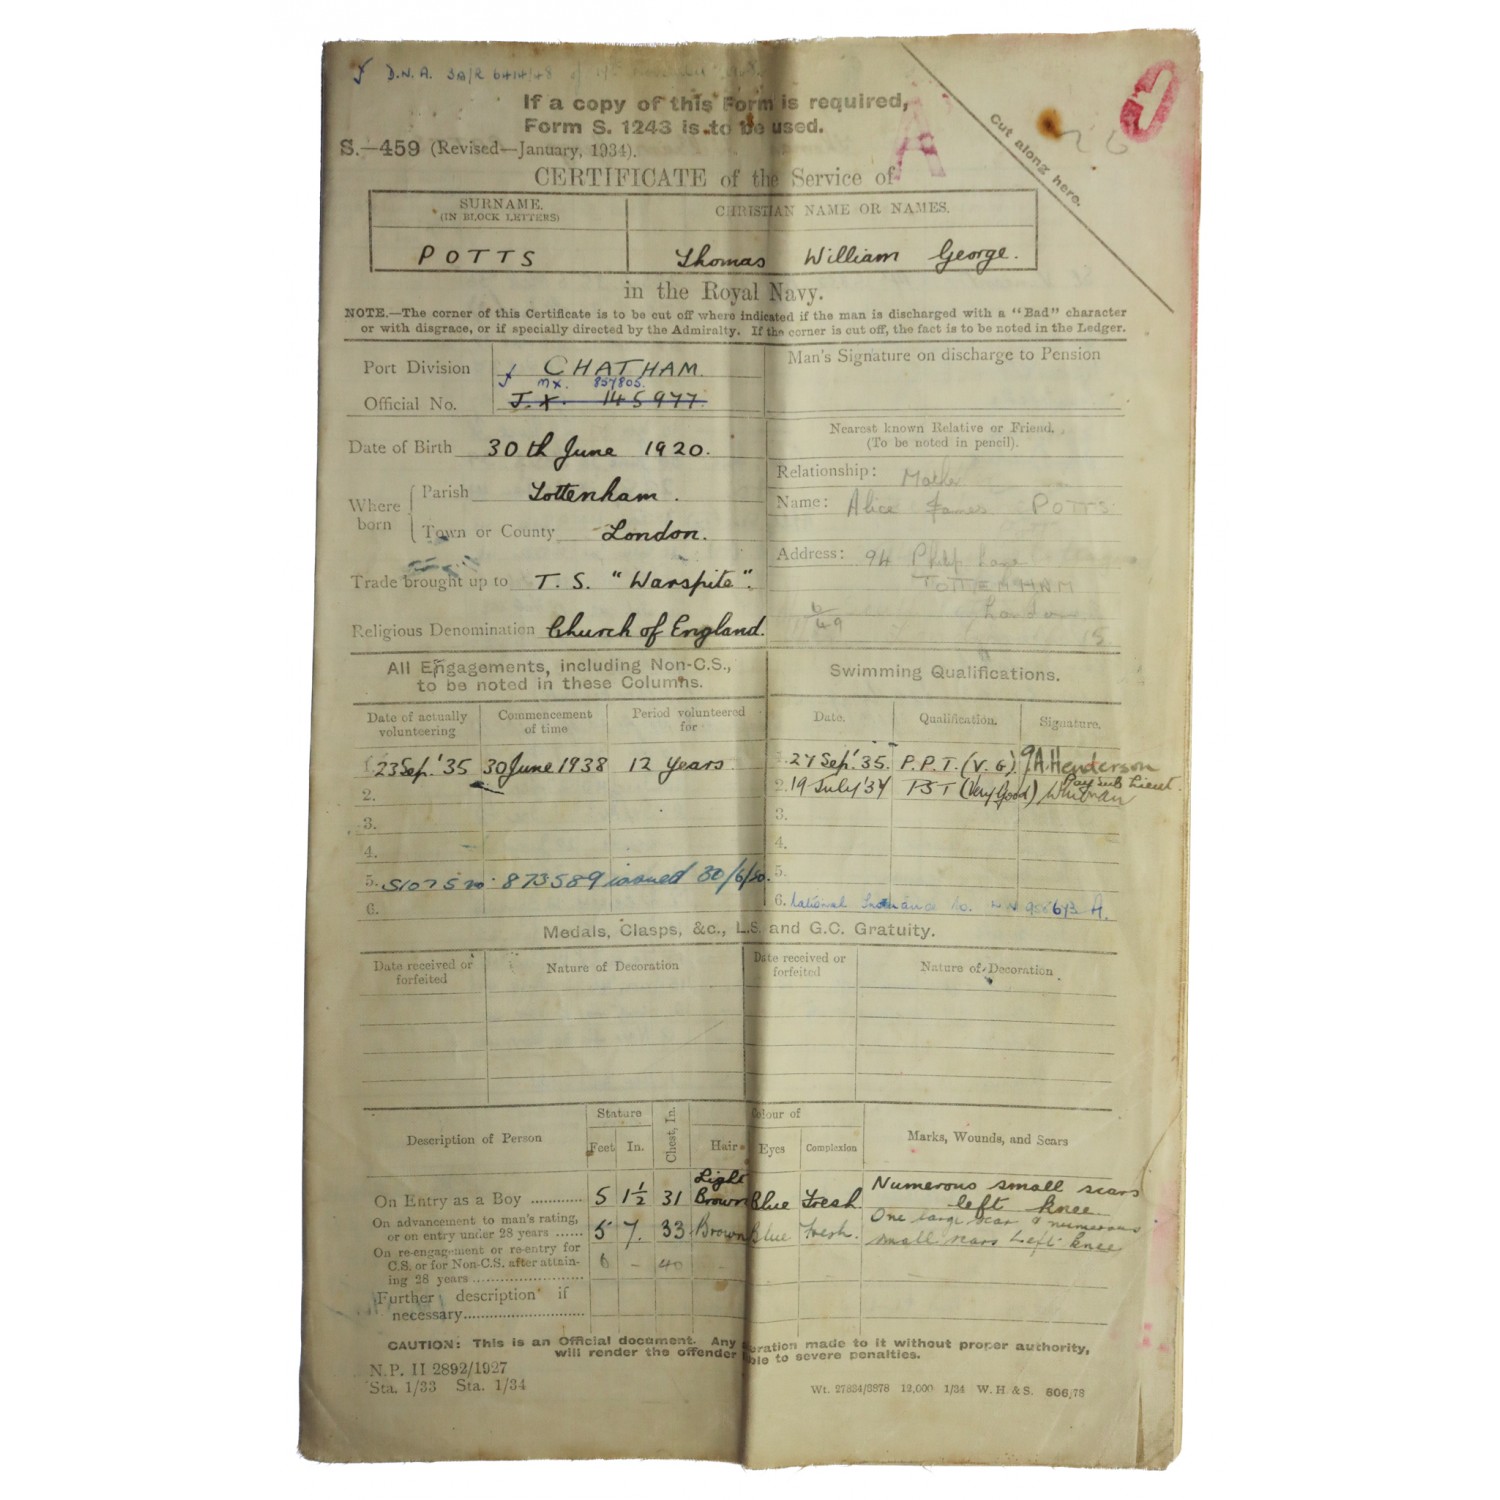 D.N.A. 3A/R 6414/48
If a copy of this Form is required,
Form S. 1243 is to be used.
Cut along here.
S.—459 (Revised—January, 1934).
CERTIFICATE of the Service of
SURNAME. CHRISTIAN NAME OR NAMES.
(IN BLOCK LETTERS)
POTTS Thomas William George.
in the Royal Navy.
NOTE.—The corner of this Certificate is to be cut off where indicated if the man is discharged with a "Bad" character
or with disgrace, or if specially directed by the Admiralty. If the corner is cut off, the fact is to be noted in the Ledger.
Port Division CHATHAM.
Man's Signature on discharge to Pension
MX. 857805.
Official No. J.X. 145977
Nearest known Relative or Friend.
(To be noted in pencil).
Date of Birth 30th June 1920.
Relationship: Mother
Where born { Parish Tottenham.
Name: Alice James POTTS
Town or County London.
Address: 94 Philip Lane
Trade brought up to T. S. "Warspite".
TOTTENHAM
London
6/49
15
Religious Denomination Church of England.
All Engagements, including Non-C.S.,
to be noted in these Columns.
Swimming Qualifications.
Date of actually volunteering Commencement of time Period volunteered for
Date. Qualification. Signature.
1. 23 Sep.' 35 30 June 1938 12 Years
1. 27 Sep.' 35. P.P.T. (V.G). J.A. Henderson
Pay Sub Lieut.
2.
2. 19 July '37 PST (Very Good)
3.
3.
4.
4.
5. S1075 no. 873589 issued 30/6/50.
5.
6.
6. National Insurance No. 613 A.
Medals, Clasps, &c., L.S. and G.C. Gratuity.
Date received or forfeited Nature of Decoration Date received or forfeited Nature of Decoration
Description of Person Stature Feet In. Chest, In. Colour of Hair Eyes Complexion Marks, Wounds, and Scars
On Entry as a Boy ............ 5 1½ 31 Light Brown Blue Fresh Numerous small scars left knee.
On advancement to man's rating, or on entry under 28 years ...... 5 7. 33 Brown Blue Fresh. One large scar & numerous small scars left knee
On re-engagement or re-entry for C.S. or for Non-C.S. after attaining 28 years ........................ 6 - 40 -
Further description if necessary...........................
CAUTION: This is an Official document. Any alteration made to it without proper authority,
will render the offender liable to severe penalties.
N.P. II 2892/1927
Sta. 1/33 Sta. 1/34
Wt. 27834/8878 12,000 1/34 W. H. & S. 606/78